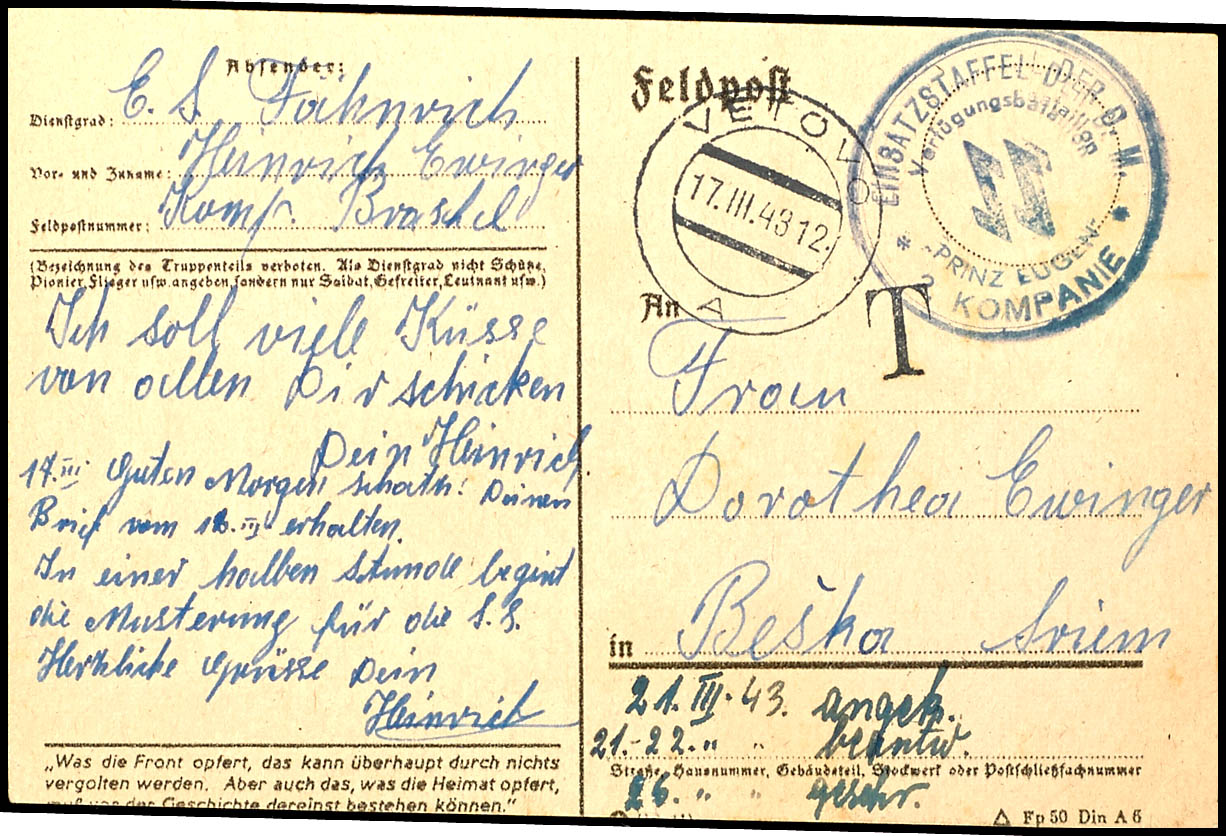 Absender:
Dienstgrad: E. S. Fähnrich
Vor- und Zuname: Heinrich Ewinger
Feldpostnummer: Komp. Braschel
(Bezeichnung des Truppenteils verboten. Als Dienstgrad nicht Schütze,
Pionier, Flieger usw. angeben, sondern nur Soldat, Gefreiter, Leutnant usw.)
Ich soll viele Küsse
von allen Dir schicken
Dein Heinrich
17.III Guten Morgen Schatz! Deinen
Brief vom erhalten.
In einer halben Stunde begint
die Musterung für die S.S.
Herzliche Grüsse Dein
Heinrich
„Was die Front opfert, das kann überhaupt durch nichts
vergolten werden. Aber auch das, was die Heimat opfert,
muß vor der Geschichte dereinst bestehen können.“
Feldpost
VETOVO
17.III.43 12.
A
EINSATZSTAFFEL DER D. M.
Verfügungsbataillon
„PRINZ EUGEN“
* 2 KOMPANIE *
T
An
Frau
Dorothea Ewinger
in Beška Sriem
21.III.43. angek.
21.-22. " " beantw.
Straße, Hausnummer, Gebäudeteil, Stockwerk oder Postschließfachnummer
" " geschr.
Fp 50 Din A 6